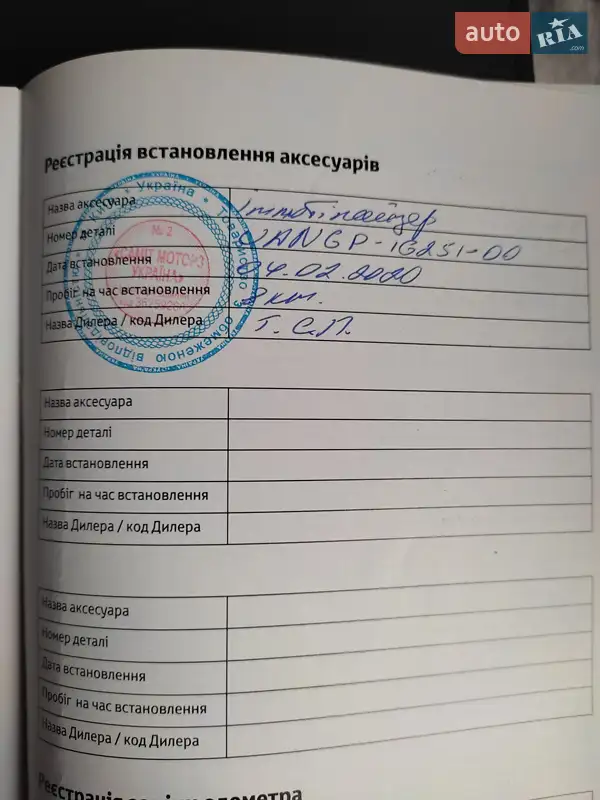 auto RIA .com
Реєстрація встановлення аксесуарів
Назва аксесуара Іммобілайзер
Номер деталі JANGP-16251-00
Дата встановлення 04.02.2020
Пробіг на час встановлення 8 км.
Назва Дилера / код Дилера Т.С.П.
* Україна * Товариство з обмеженою відповідальністю
№ 2
«САМІТ МОТОРЗ
УКРАЇНА»
Назва аксесуара
Номер деталі
Дата встановлення
Пробіг на час встановлення
Назва Дилера / код Дилера
Назва аксесуара
Номер деталі
Дата встановлення
Пробіг на час встановлення
Назва Дилера / код Дилера